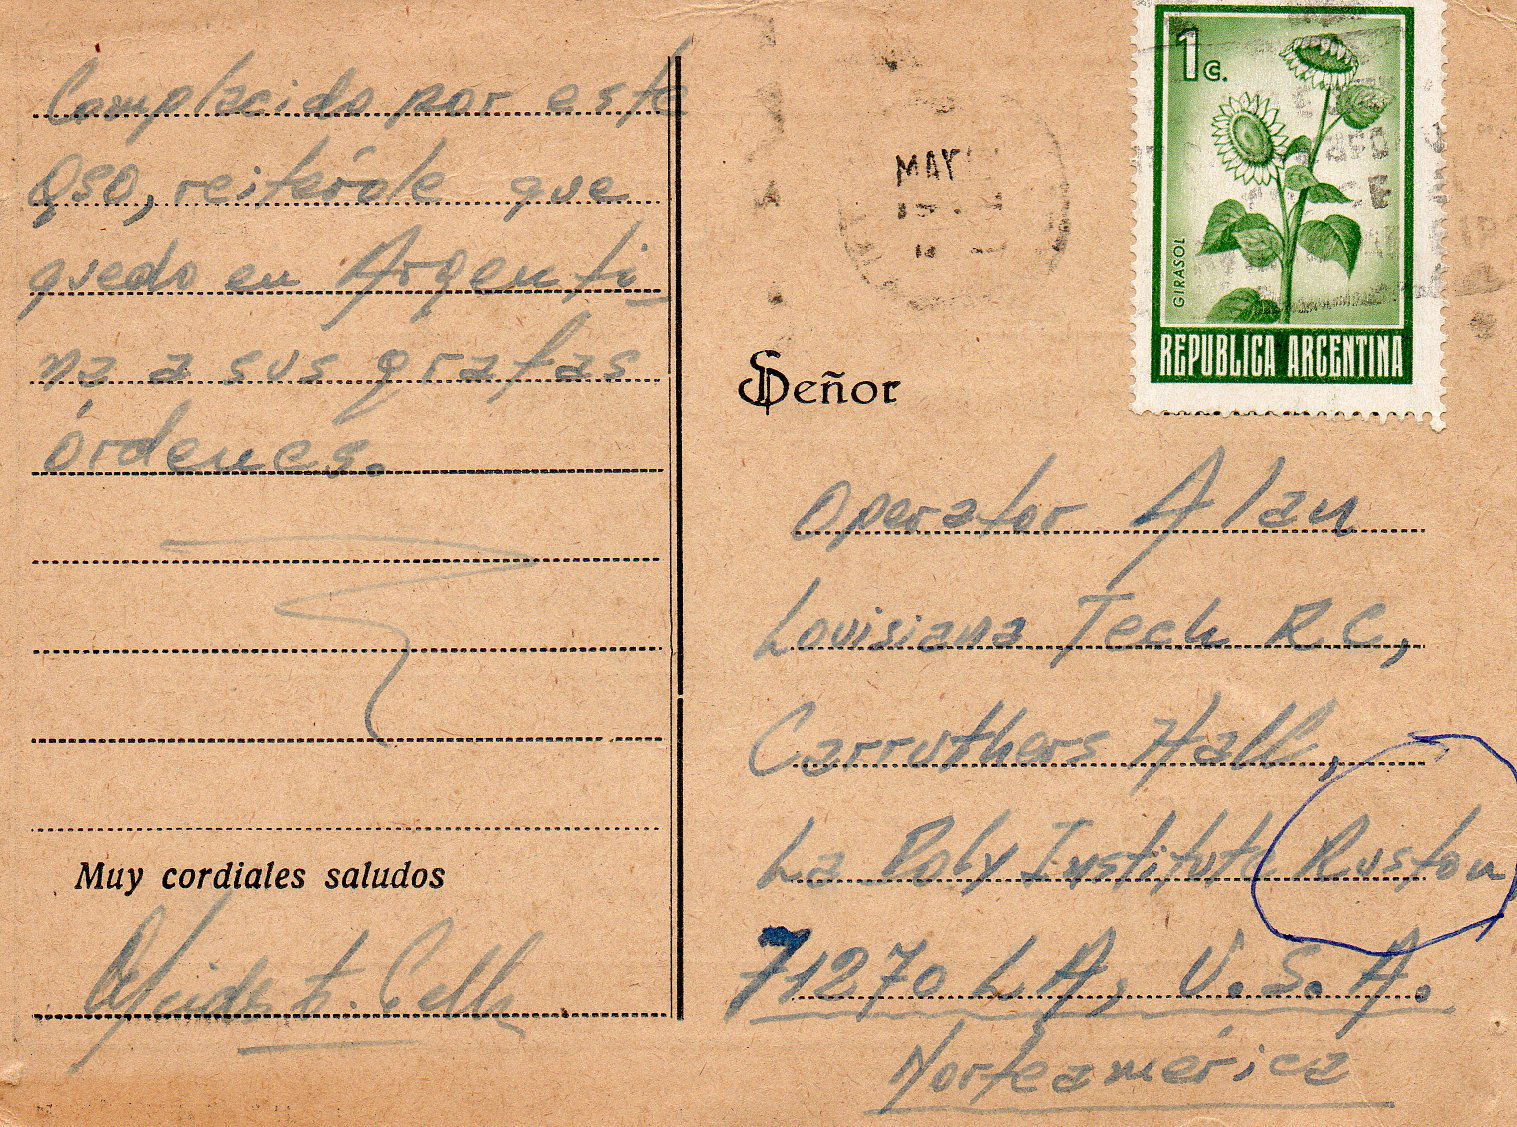 Complacido por este
QSO, reitérole que
quedo en Argenti-
na a sus gratas
órdenes.
Muy cordiales saludos
MAY
1 c.
GIRASOL
REPUBLICA ARGENTINA
Señor
Operator Alan
Louisiana Tech R C,
Carruthers Hall,
La Poly Institute Ruston,
71270 LA, U.S.A.
Norteamérica